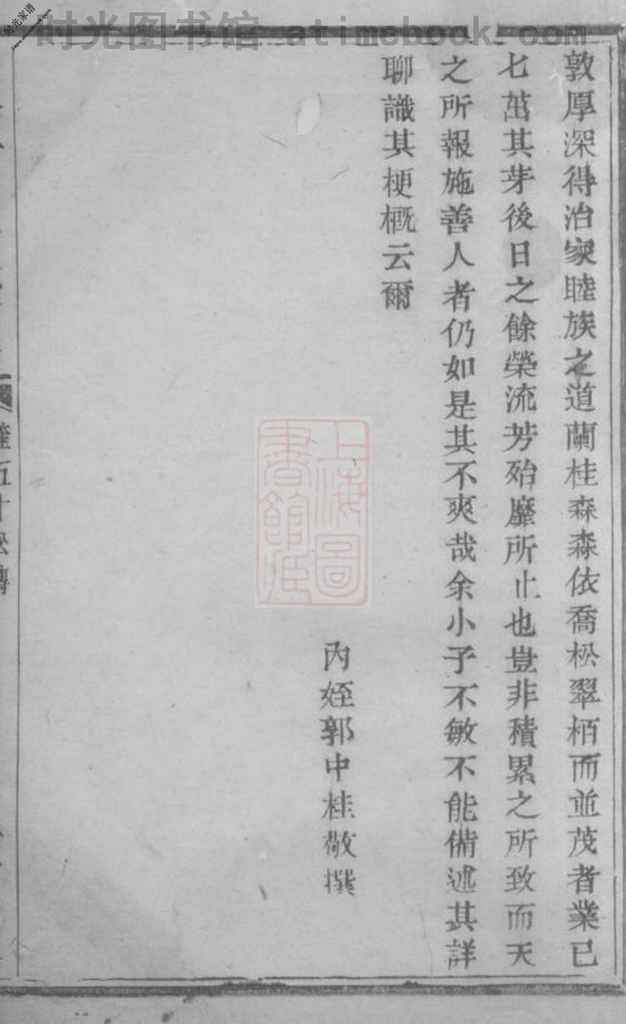 时光图书馆 atimebook.com
敦厚深得治家睦族之道蘭桂森森依喬松翠栢而並茂者業已
七茁其芽後日之餘榮流芳殆靡所止也豈非積累之所致而天
之所報施善人者仍如是其不爽哉余小子不敏不能備述其詳
聊識其梗概云爾
內姪郭中桂敬撰
上海圖
書館藏
五十公傳